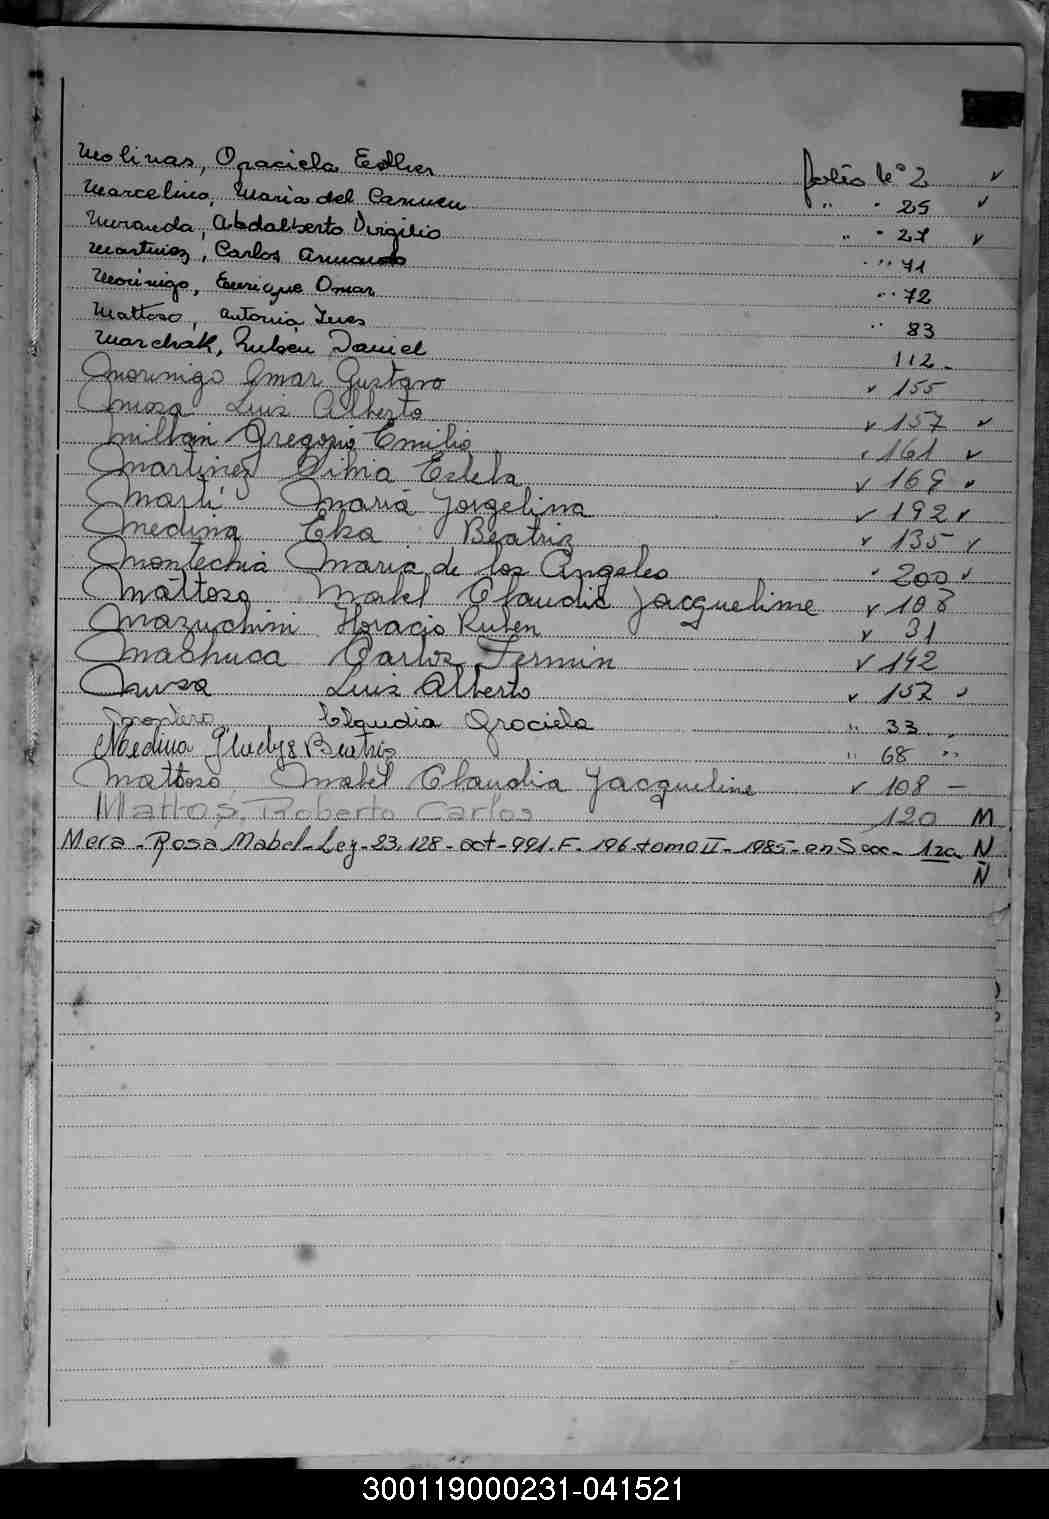 Molinas, Graciela Esther folio Nº 2 ✓
Marcelino, Maria del Carmen " " 25 ✓
Miranda, Abdalberto Virgilio " " 27 ✓
Martinez, Carlos Armando " " 71
Morinigo, Enrique Omar " " 72
Mattoso, Antonia Ines " 83
Marchak, Ruben Daniel 112
Morinigo Omar Gustavo ✓ 155
Musa Luis Alberto ✓ 157 ✓
Millan Gregorio Emilio ✓ 161 ✓
Martinez Silvia Estela ✓ 169 ✓
Marti Maria Jorgelina ✓ 192 ✓
Medina Elsa Beatriz ✓ 135 ✓
Montechia Maria de los Angeles " 200 ✓
Mattoso Mabel Claudia Jacqueline ✓ 108
Mazuchini Horacio Ruben ✓ 31
Machuca Carlos Fermin ✓ 142
Musa Luis Alberto ✓ 157 ✓
Montero Claudia Graciela " 33
Medina Gladys Beatriz " 68 "
Mattoso Mabel Claudia Jacqueline ✓ 108 -
Mattos, Roberto Carlos 120 M
Mera - Rosa Mabel - Leg - 23.128 - oct - 991. F. 196. tomo II - 1985 - en Secc - 1ra N
Ñ
300119000231-041521